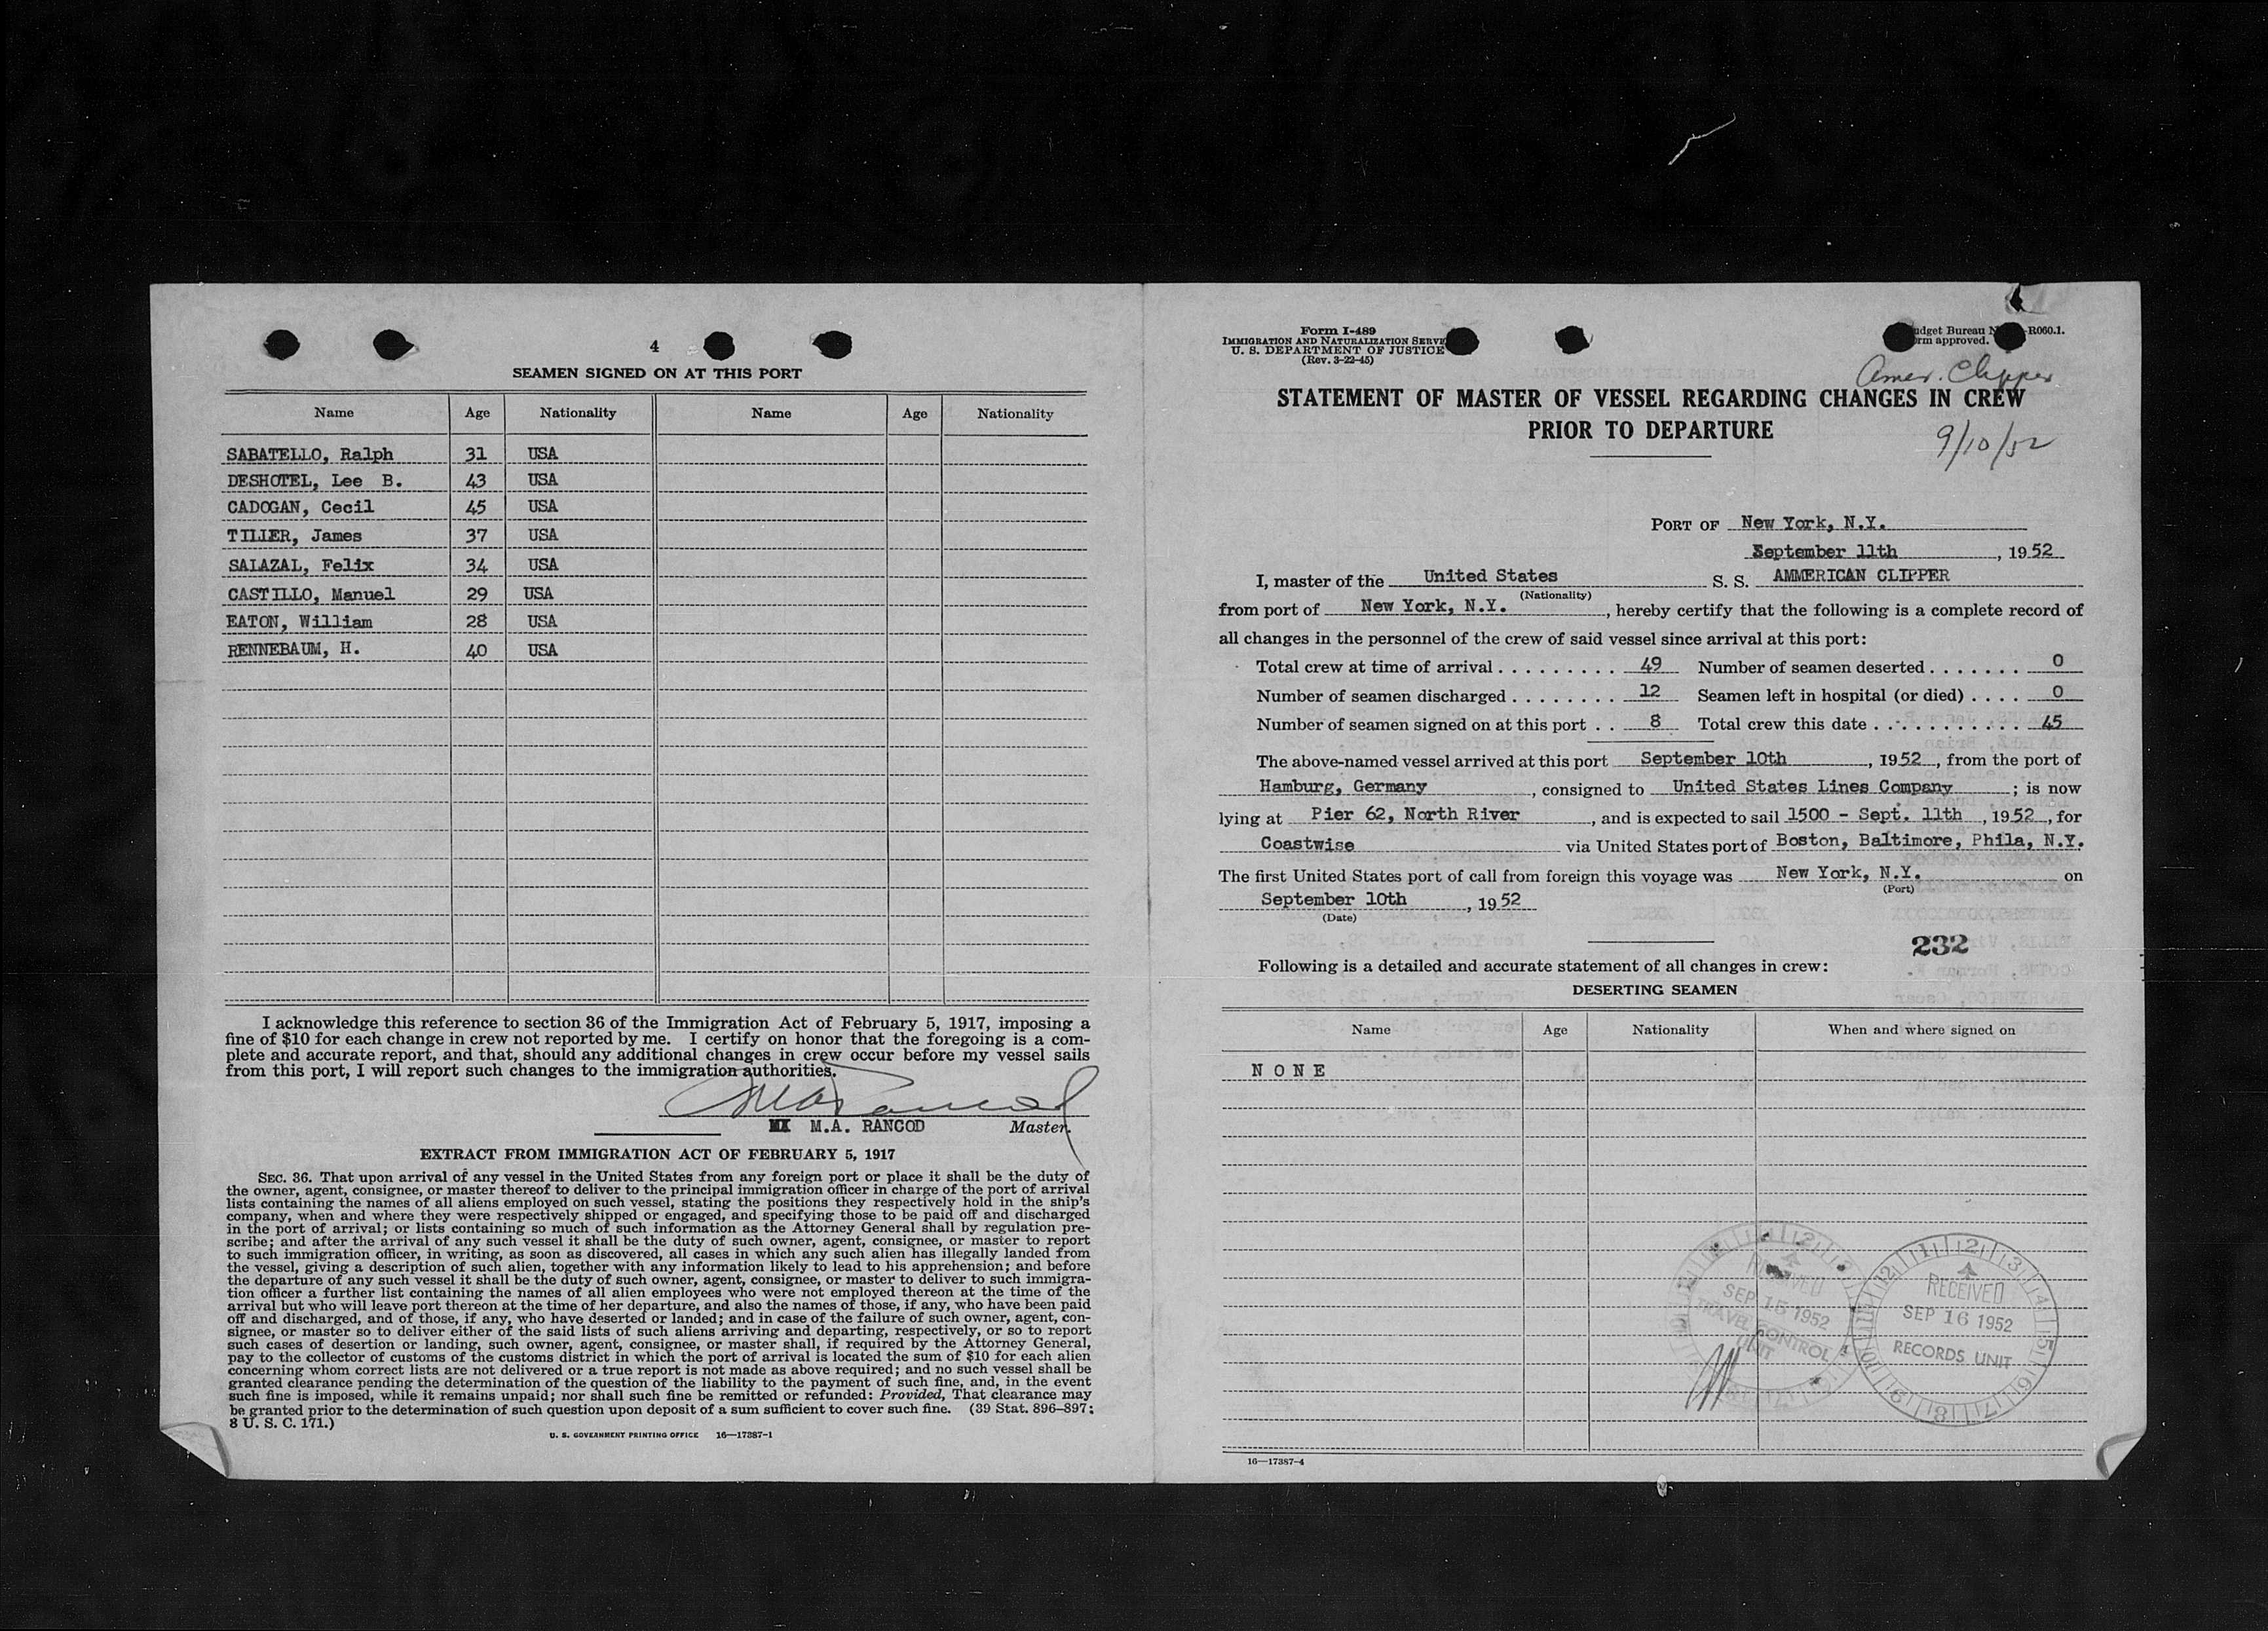 4
SEAMEN SIGNED ON AT THIS PORT
Name Age Nationality Name Age Nationality
SABATELLO, Ralph 31 USA
DESHOTEL, Lee B. 43 USA
CADOGAN, Cecil 45 USA
TILIER, James 37 USA
SALAZAL, Felix 34 USA
CASTILLO, Manuel 29 USA
EATON, William 28 USA
RENNEBAUM, H. 40 USA
I acknowledge this reference to section 36 of the Immigration Act of February 5, 1917, imposing a
fine of $10 for each change in crew not reported by me. I certify on honor that the foregoing is a com-
plete and accurate report, and that, should any additional changes in crew occur before my vessel sails
from this port, I will report such changes to the immigration authorities.
M.A. RANCOD Master.
EXTRACT FROM IMMIGRATION ACT OF FEBRUARY 5, 1917
SEC. 36. That upon arrival of any vessel in the United States from any foreign port or place it shall be the duty of
the owner, agent, consignee, or master thereof to deliver to the principal immigration officer in charge of the port of arrival
lists containing the names of all aliens employed on such vessel, stating the positions they respectively hold in the ship's
company, when and where they were respectively shipped or engaged, and specifying those to be paid off and discharged
in the port of arrival; or lists containing so much of such information as the Attorney General shall by regulation pre-
scribe; and after the arrival of any such vessel it shall be the duty of such owner, agent, consignee, or master to report
to such immigration officer, in writing, as soon as discovered, all cases in which any such alien has illegally landed from
the vessel, giving a description of such alien, together with any information likely to lead to his apprehension; and before
the departure of any such vessel it shall be the duty of such owner, agent, consignee, or master to deliver to such immigra-
tion officer a further list containing the names of all alien employees who were not employed thereon at the time of the
arrival but who will leave port thereon at the time of her departure, and also the names of those, if any, who have been paid
off and discharged, and of those, if any, who have deserted or landed; and in case of the failure of such owner, agent, con-
signee, or master so to deliver either of the said lists of such aliens arriving and departing, respectively, or so to report
such cases of desertion or landing, such owner, agent, consignee, or master shall, if required by the Attorney General,
pay to the collector of customs of the customs district in which the port of arrival is located the sum of $10 for each alien
concerning whom correct lists are not delivered or a true report is not made as above required; and no such vessel shall be
granted clearance pending the determination of the question of the liability to the payment of such fine, and, in the event
such fine is imposed, while it remains unpaid; nor shall such fine be remitted or refunded: Provided, That clearance may
be granted prior to the determination of such question upon deposit of a sum sufficient to cover such fine. (39 Stat. 896–897;
8 U. S. C. 171.)
U. S. GOVERNMENT PRINTING OFFICE 16—17387-1
Form I-489
IMMIGRATION AND NATURALIZATION
U. S. DEPARTMENT OF JUSTICE
(Rev. 3-22-45)
Bureau R060.1.
approved.
Amer. Clipper
STATEMENT OF MASTER OF VESSEL REGARDING CHANGES IN CREW
PRIOR TO DEPARTURE
9/10/52
PORT OF New York, N.Y.
September 11th, 1952
I, master of the United States S. S. AMMERICAN CLIPPER
(Nationality)
from port of New York, N.Y., hereby certify that the following is a complete record of
all changes in the personnel of the crew of said vessel since arrival at this port:
Total crew at time of arrival . . . . . . . . . . 49 Number of seamen deserted . . . . . . . 0
Number of seamen discharged . . . . . . . . 12 Seamen left in hospital (or died) . . . . 0
Number of seamen signed on at this port . . 8 Total crew this date . . . . . . . . . . . . 45
The above-named vessel arrived at this port September 10th, 1952, from the port of
Hamburg, Germany, consigned to United States Lines Company; is now
lying at Pier 62, North River, and is expected to sail 1500 - Sept. 11th, 1952, for
Coastwise via United States port of Boston, Baltimore, Phila, N.Y.
The first United States port of call from foreign this voyage was New York, N.Y. on
(Port)
September 10th, 1952
(Date)
232
Following is a detailed and accurate statement of all changes in crew:
DESERTING SEAMEN
Name Age Nationality When and where signed on
N O N E
RECEIVED
SEP 15 1952
TRAVEL CONTROL
UNIT
RECEIVED
SEP 16 1952
RECORDS UNIT
16—17387-4